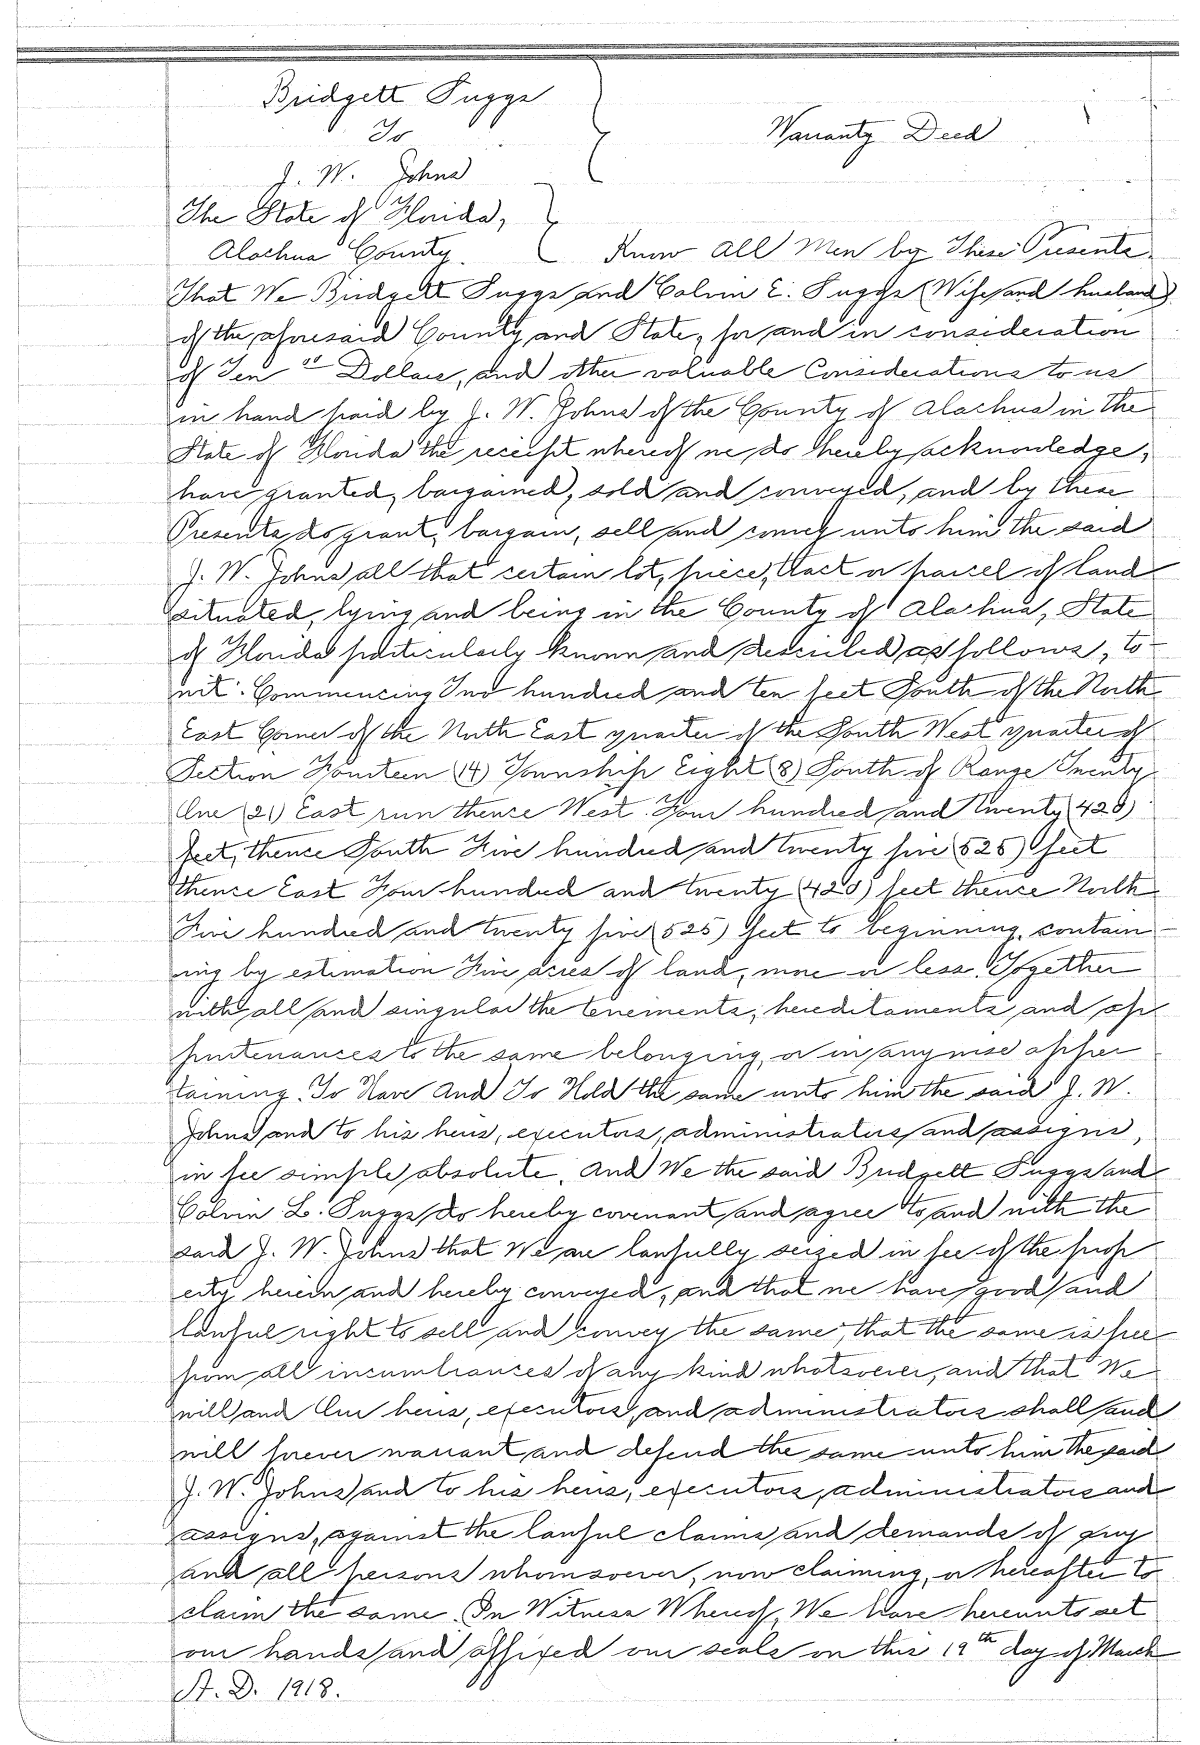 Bridgett Suggs
To
Warranty Deed
J. W. Johns
The State of Florida,
Alachua County.
Know All Men by These Presents
That We Bridgett Suggs and Colvin E. Suggs (Wife and husband)
of the aforesaid County and State, for and in consideration
of Ten Dollars, and other valuable Considerations to us
in hand paid by J. W. Johns of the County of Alachua in the
State of Florida the receipt whereof we do hereby acknowledge,
have granted, bargained, sold and conveyed, and by these
Presents do grant, bargain, sell and convey unto him the said
J. W. Johns all that certain lot, piece, tract or parcel of land
situated, lying and being in the County of Alachua, State
of Florida particularly known and described as follows, to-
wit: Commencing Two hundred and ten feet South of the North
East Corner of the North East quarter of the South West quarter of
Section Fourteen (14) Township Eight (8) South of Range Twenty
One (21) East run thence West Four hundred and twenty (420)
feet, thence South Five hundred and twenty five (525) feet
thence East Four hundred and twenty (420) feet thence North
Five hundred and twenty five (525) feet to beginning, contain-
ing by estimation Five acres of land, more or less. Together
with all and singular the tenements, hereditaments and ap-
purtenances to the same belonging, or in anywise apper
taining. To Have And To Hold the same unto him the said J. W.
Johns and to his heirs, executors, administrators and assigns,
in fee simple absolute. And We the said Bridgett Suggs and
Colvin L. Suggs do hereby covenant and agree to and with the
said J. W. Johns that We are lawfully seized in fee of the prop
erty herein and hereby conveyed, and that we have good and
lawful right to sell and convey the same, that the same is free
from all incumbrances of any kind whatsoever, and that We
will and Our heirs, executors, and administrators shall and
will forever warrant and defend the same unto him the said
J. W. Johns and to his heirs, executors, administrators and
assigns, against the lawful claims and demands of any
and all persons whomsoever, now claiming, or hereafter to
claim the same. In Witness Whereof, We have hereunto set
our hands and affixed our seals on this 19th day of March
A. D. 1918.